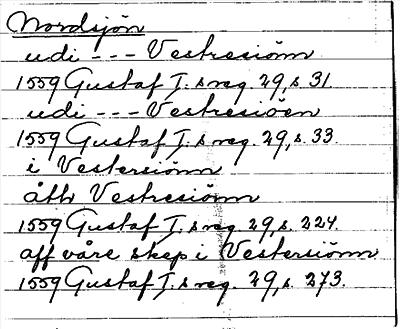 Nordsjön
udi --- Vestresiönn
1559 Gustaf I:s reg. 29, s. 31
udi --- Vestresiöen
1559 Gustaf I:s reg. 29, s. 33.
i Vestersiönn
åth Vestresiönn
1559 Gustaf I:s reg. 29, s. 224.
aff våre skep i Vestersiönn
1559 Gustaf I:s reg. 29, s. 273.